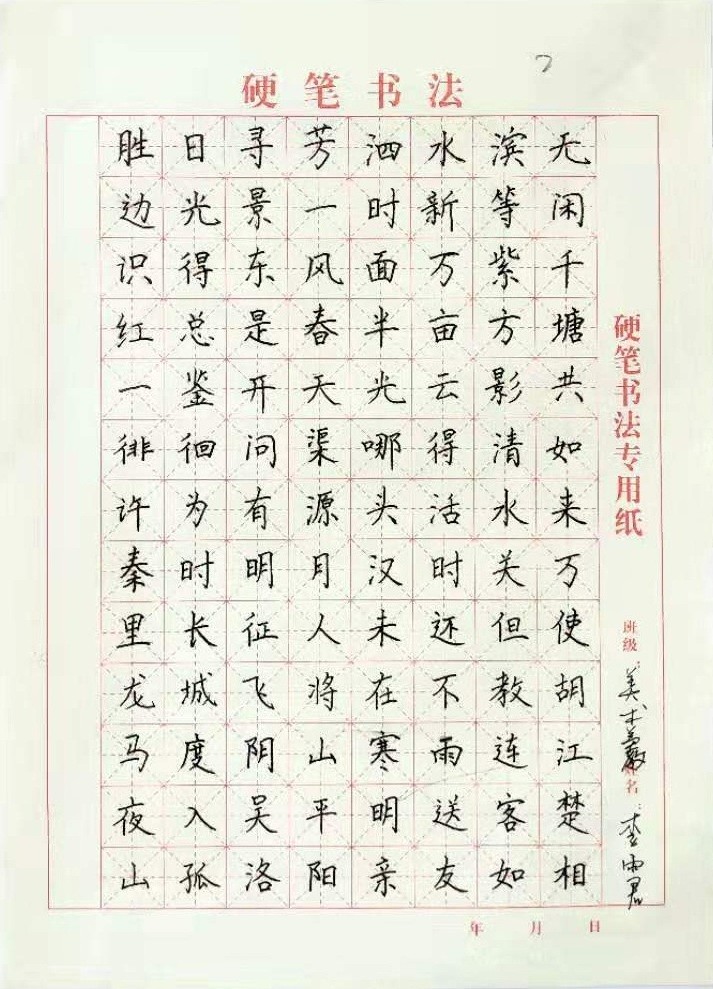 硬笔书法
胜日寻芳泗水滨无
边光景一时新等闲
识得东风面万紫千
红总是春半亩方塘
一鉴开天光云影共
徘徊问渠哪得清如
许为有源头活水来
秦时明月汉时关万
里长征人未还但使
龙城飞将在不教胡
马度阴山寒雨连江
夜入吴平明送客楚
山孤洛阳亲友如相
硬笔书法专用纸
班级：美术
姓名：李雨君
年 月 日